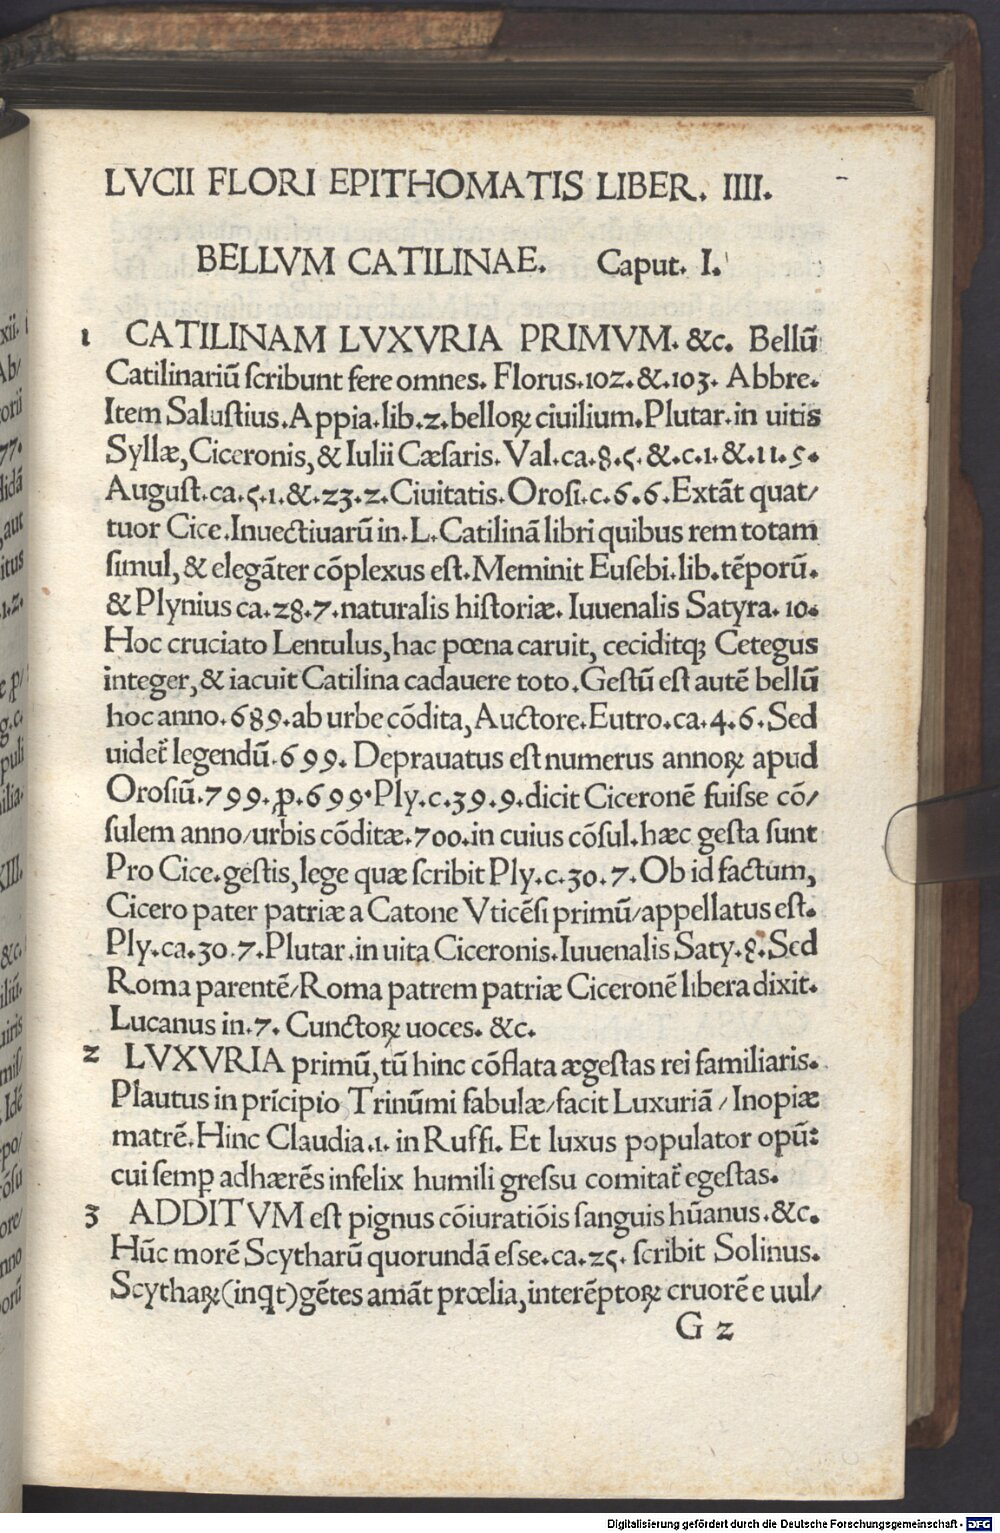 LVCII FLORI EPITHOMATIS LIBER. IIII.
BELLVM CATILINAE. Caput. I.
1 CATILINAM LVXVRIA PRIMVM. &c. Bellū
Catilinariū scribunt fere omnes. Florus.102.&.103. Abbre.
Item Salustius.Appia.lib.2.belloꝝ ciuilium.Plutar.in uitis
Syllæ,Ciceronis,& Iulii Cæsaris. Val.ca.8.5.&.c.1.&.11.5.
August.ca.5.1.&.23.2.Ciuitatis.Orosi.c.6.6.Extāt quat/
tuor Cice.Inuectiuarū in.L.Catilinā libri quibus rem totam
simul,& elegāter cōplexus est.Meminit Eusebi.lib.tēporū.
& Plynius ca.28.7.naturalis historiæ. Iuuenalis Satyra.10.
Hoc cruciato Lentulus,hac pœna caruit, ceciditqꝫ Cetegus
integer,& iacuit Catilina cadauere toto.Gestū est autē bellū
hoc anno.689.ab urbe cōdita,Auctore.Eutro.ca.4.6.Sed
uidet̄ legendū.699. Deprauatus est numerus annoꝝ apud
Orosiū.799.ꝓ.699.Ply.c.39.9.dicit Ciceronē fuisse cō/
sulem anno/urbis cōditæ.700.in cuius cōsul.hæc gesta sunt
Pro Cice.gestis,lege quæ scribit Ply.c.30.7.Ob id factum,
Cicero pater patriæ a Catone Vticēsi primū/appellatus est.
Ply.ca.30.7.Plutar.in uita Ciceronis.Iuuenalis Saty.8.Sed
Roma parentē/Roma patrem patriæ Ciceronē libera dixit.
Lucanus in.7. Cunctoꝝ uoces. &c.
2 LVXVRIA primū,tū hinc cōflata ægestas rei familiaris.
Plautus in prīcipio Trinūmi fabulæ/facit Luxuriā/Inopiæ
matrē.Hinc Claudia.1. in Ruffi. Et luxus populator opū:
cui semꝑ adhærēs infelix humili gressu comitat̄ egestas.
3 ADDITVM est pignus cōiuratiōis sanguis hūanus.&c.
Hūc morē Scytharū quorundā esse.ca.25. scribit Solinus.
Scythaꝝ(inqt)gētes amāt prœlia,interēptoꝝ cruorē e uul/
G 2
Digitalisierung gefördert durch die Deutsche Forschungsgemeinschaft - DFG